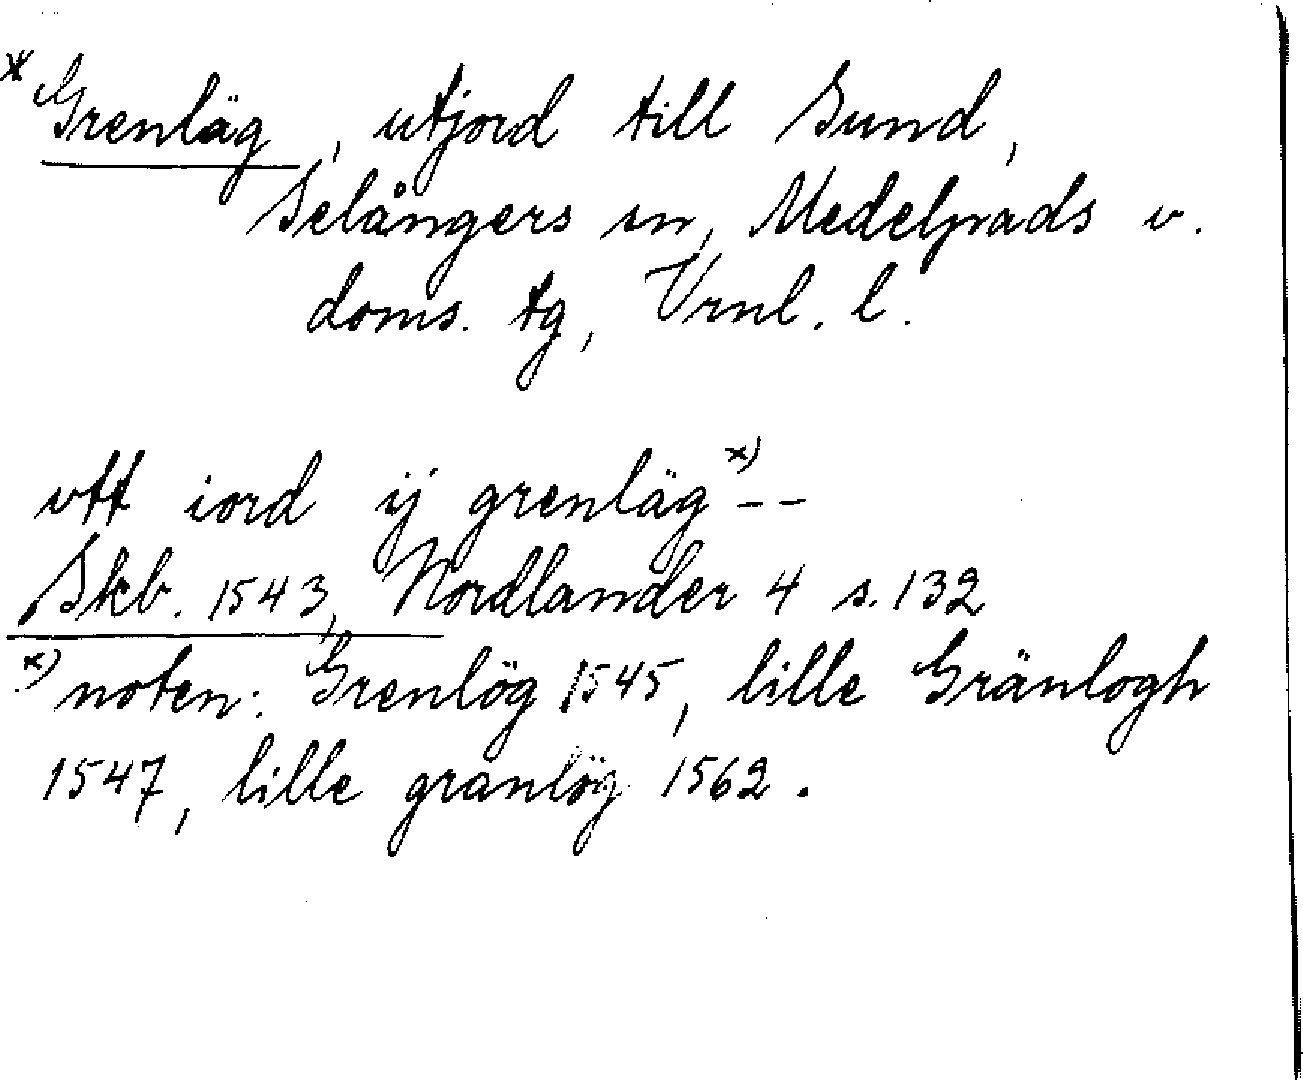 * Grenläg, utjord till Sund,
Selångers sn, Medelpads v.
doms. tg, Vrnl. l.
vtt iord ij grenläg x) --
Skb. 1543, Nordlander 4 s. 132
x) noten: Grenlög 1545, lille Gränlogh
1547, lille granlög 1562.